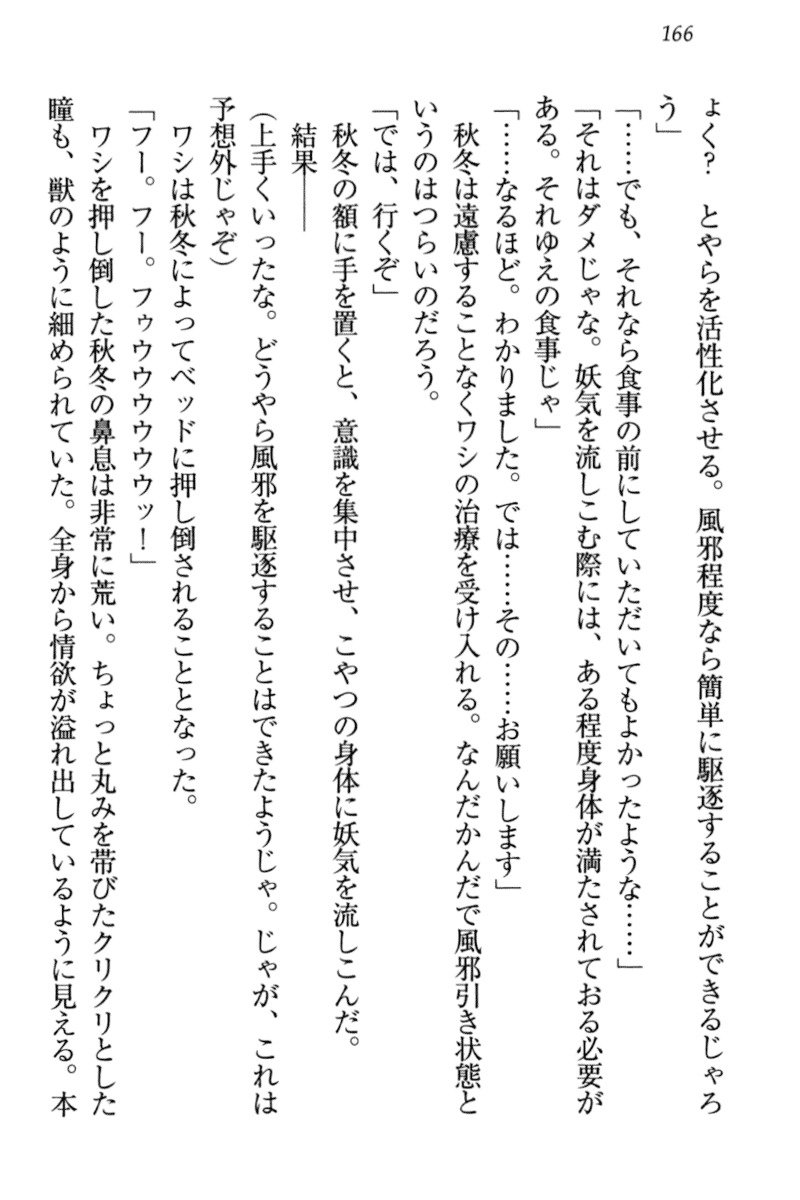 166
ょく?　とやらを活性化させる。風邪程度なら簡単に駆逐することができるじゃろ
う」
「……でも、それなら食事の前にしていただいてもよかったような……」
「それはダメじゃな。妖気を流しこむ際には、ある程度身体が満たされておる必要が
ある。それゆえの食事じゃ」
「……なるほど。わかりました。では……その……お願いします」
　秋冬は遠慮することなくワシの治療を受け入れる。なんだかんだで風邪引き状態と
いうのはつらいのだろう。
「では、行くぞ」
　秋冬の額に手を置くと、意識を集中させ、こやつの身体に妖気を流しこんだ。
　結果――
（上手くいったな。どうやら風邪を駆逐することはできたようじゃ。じゃが、これは
予想外じゃぞ）
　ワシは秋冬によってベッドに押し倒されることとなった。
「フー。フー。フゥウウウウウウッ！」
　ワシを押し倒した秋冬の鼻息は非常に荒い。ちょっと丸みを帯びたクリクリとした
瞳も、獣のように細められていた。全身から情欲が溢れ出しているように見える。本